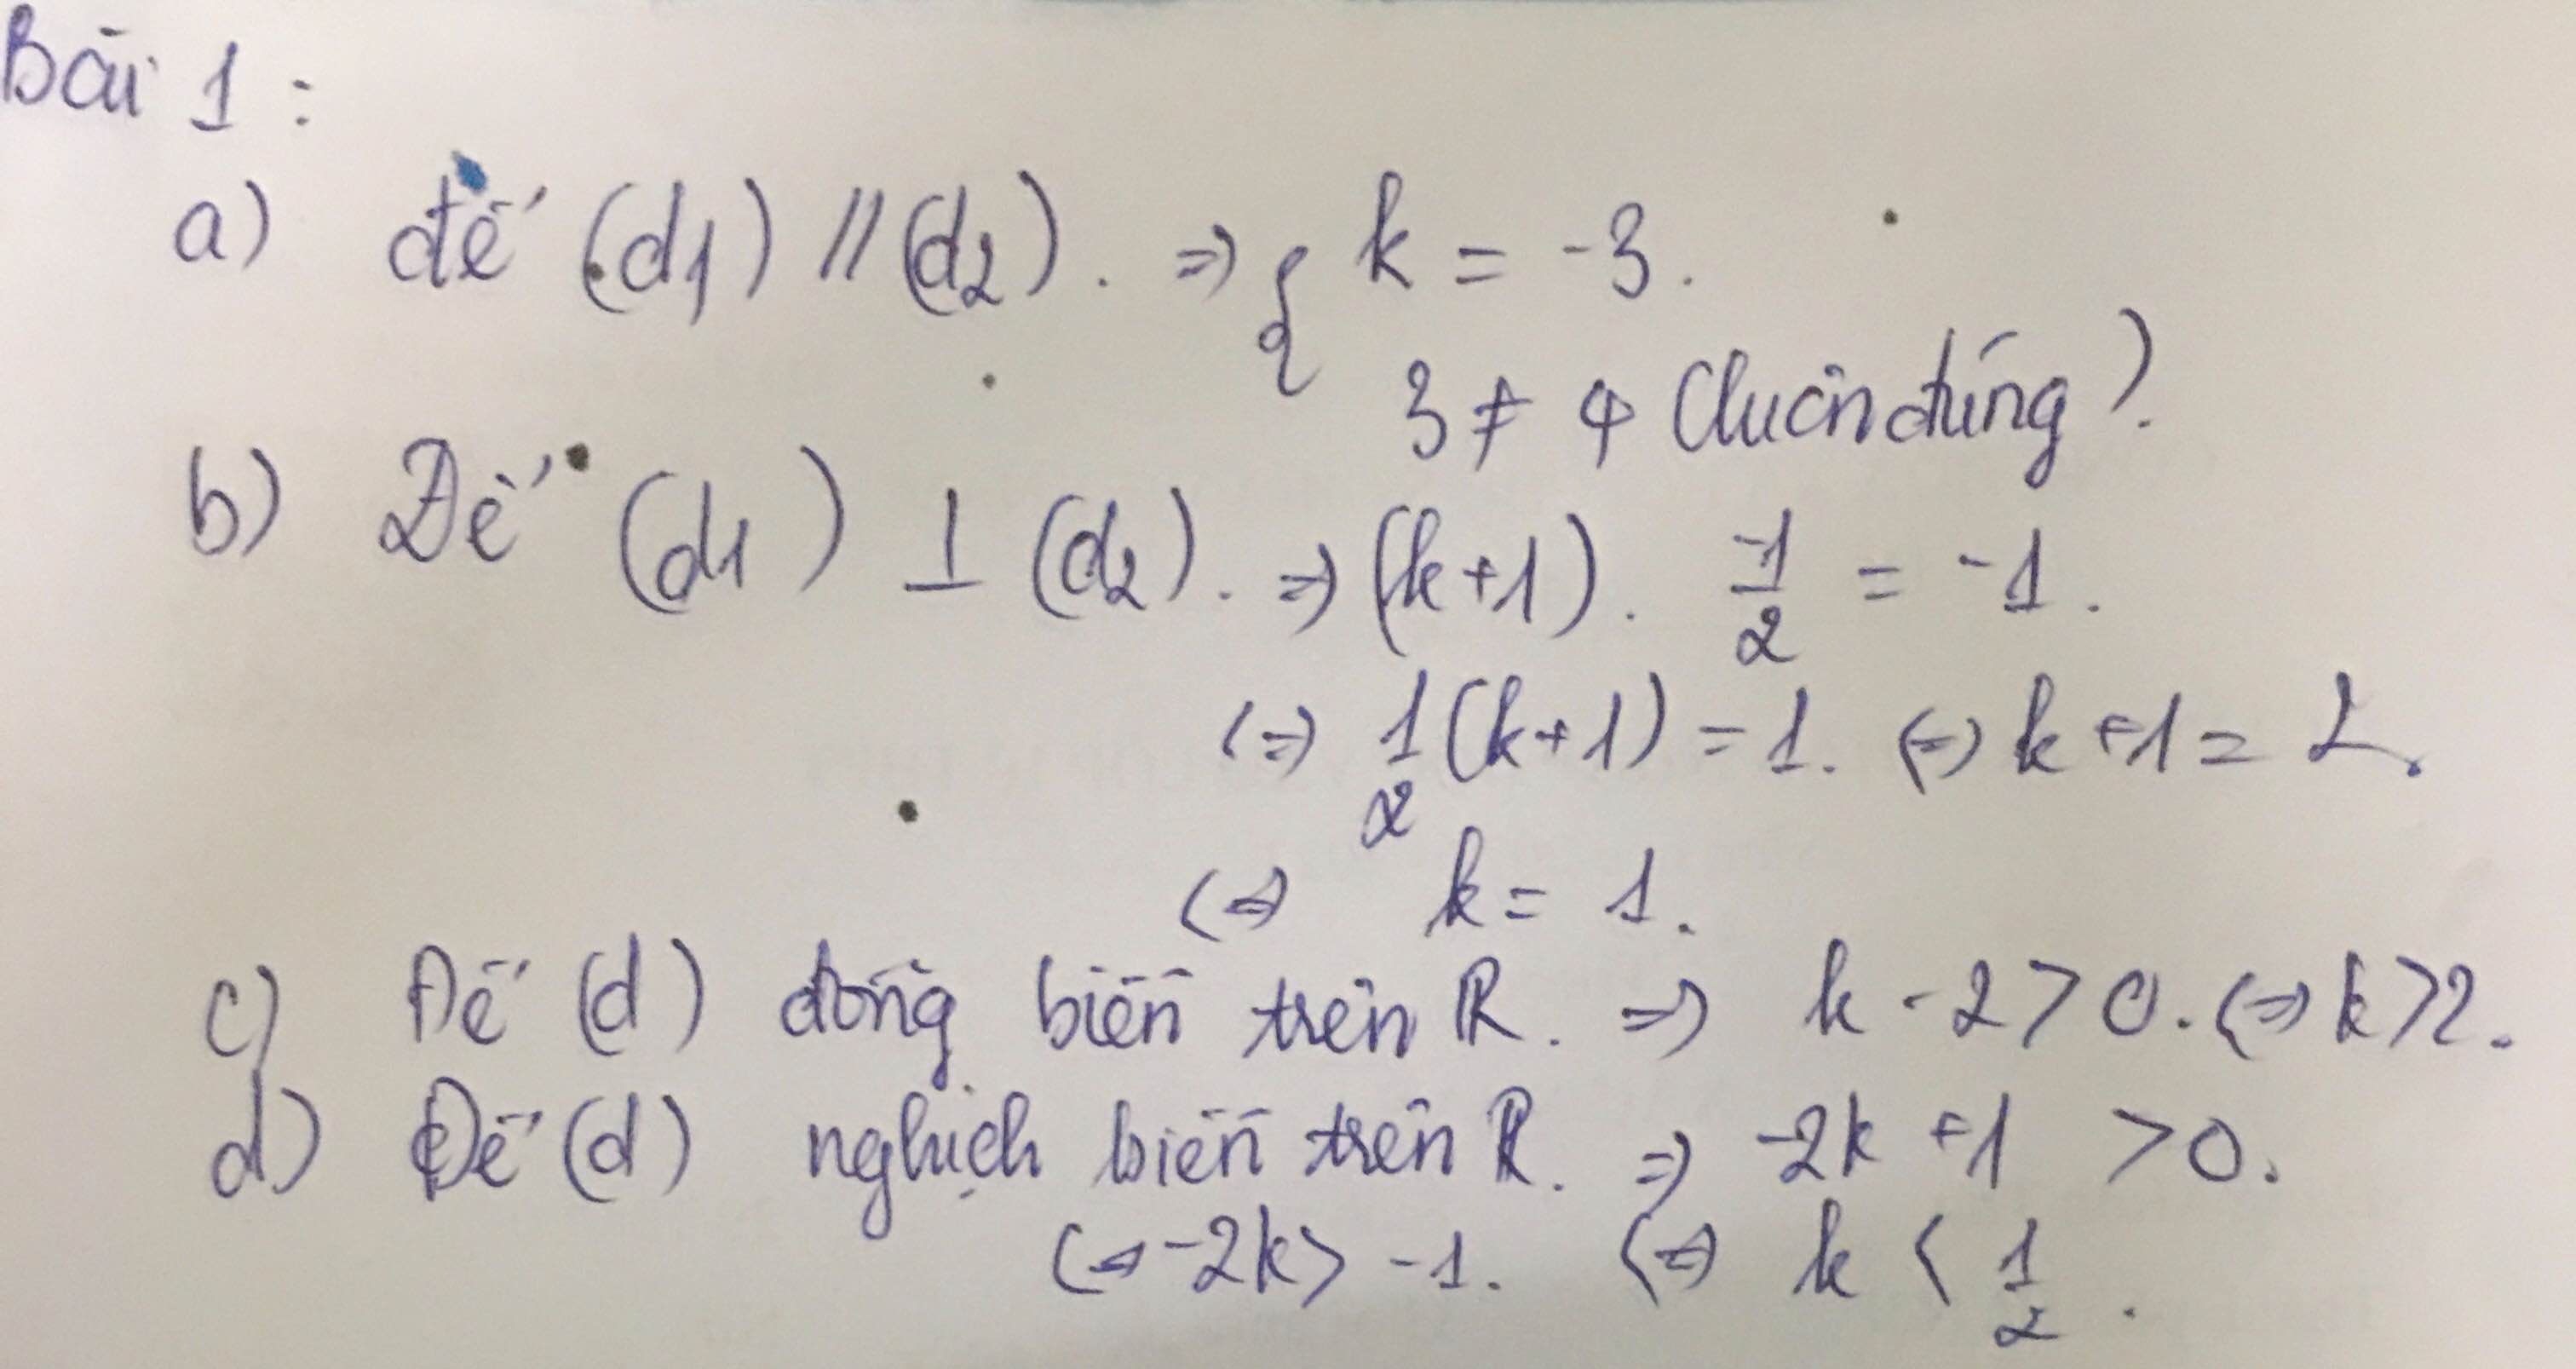 Bài 1 :
a) để (d1) // (d2). => { k = -3.
3 ≠ 4 (luôn đúng).
b) Để (d1) ⊥ (d2). => (k+1). -1/2 = -1.
<=> 1/2 (k+1) = 1. <=> k+1 = 2.
<=> k = 1.
c) Để (d) đồng biến trên R. => k - 2 > 0. <=> k > 2.
d) Để (d) nghịch biến trên R. => -2k +1 > 0.
<=> -2k > -1. <=> k < 1/2.